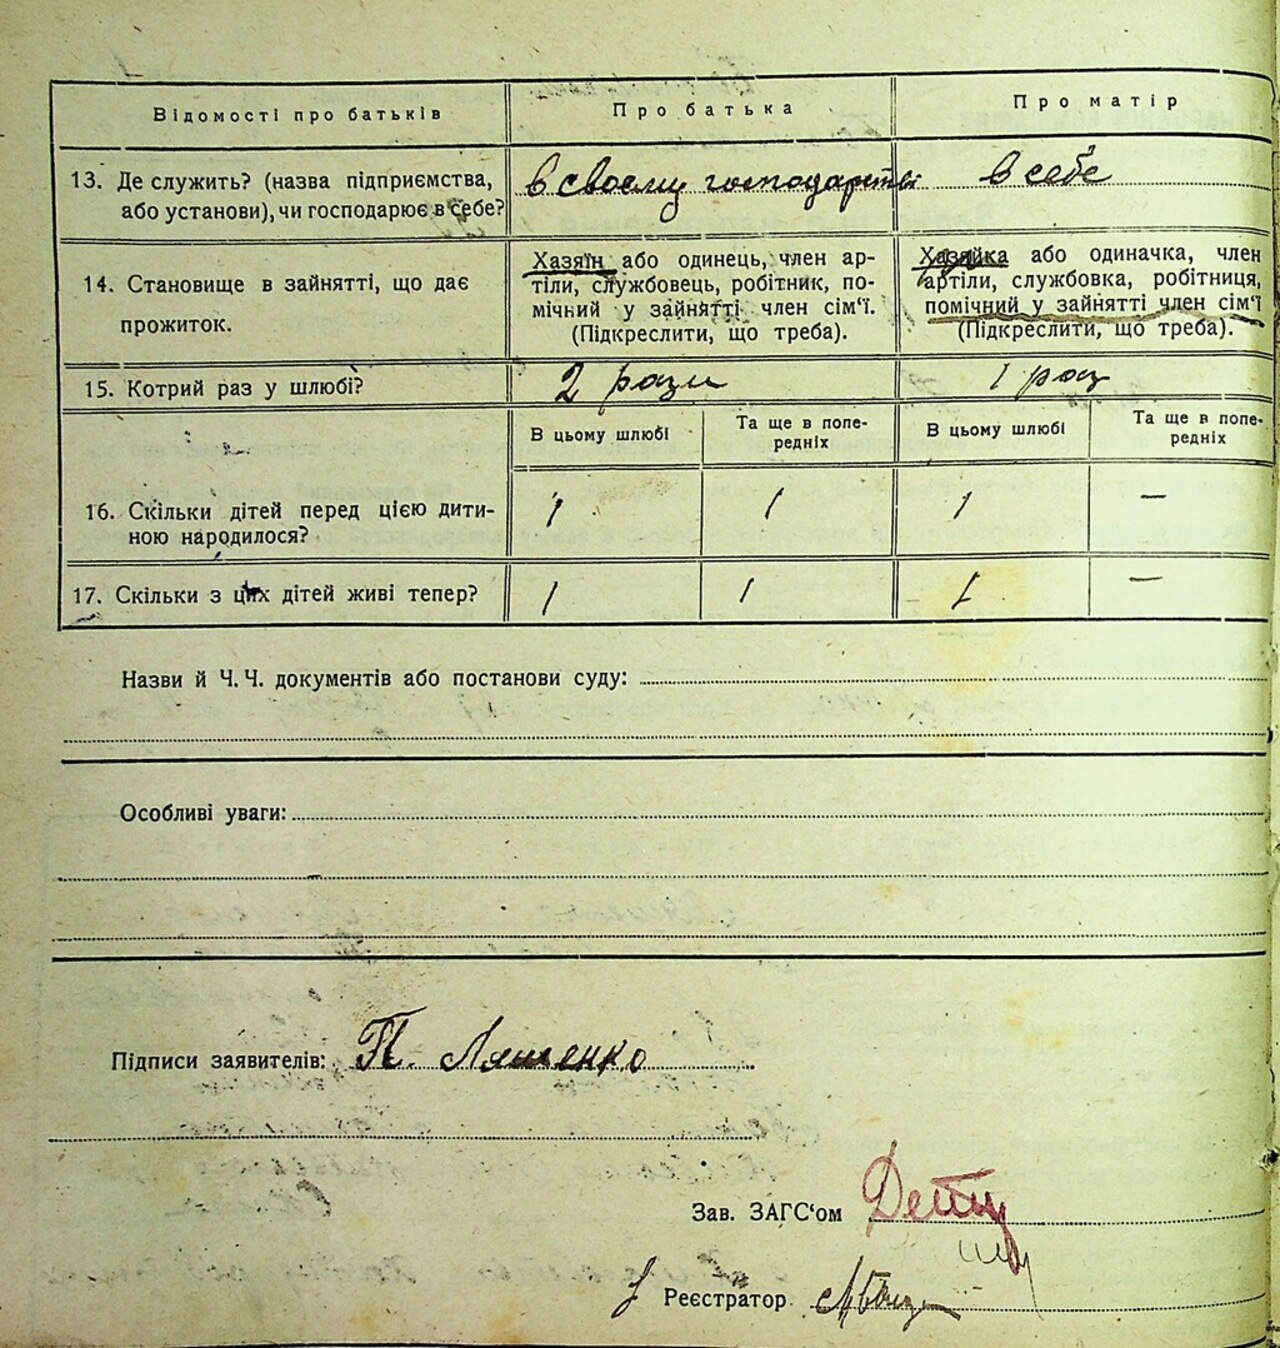 Відомості про батьків
Про батька
Про матір
13. Де служить? (назва підприємства,
або установи), чи господарює в себе?
в своєму господарстві
в себе
14. Становище в зайнятті, що дає
прожиток.
Хазяїн або одинець, член ар-
тіли, службовець, робітник, по-
мічний у зайнятті член сім'ї.
(Підкреслити, що треба).
Хазяйка або одиначка, член
артіли, службовка, робітниця,
помічний у зайнятті член сім'ї
(Підкреслити, що треба).
15. Котрий раз у шлюбі?
2 рази
1 раз
В цьому шлюбі
Та ще в попе-
редніх
В цьому шлюбі
Та ще в попе-
редніх
16. Скільки дітей перед цією дити-
ною народилося?
1
1
1
—
17. Скільки з цих дітей живі тепер?
1
1
1
—
Назви й Ч. Ч. документів або постанови суду:
Особливі уваги:
Підписи заявителів: П. Ляшенко
Зав. ЗАГС'ом
Реєстратор